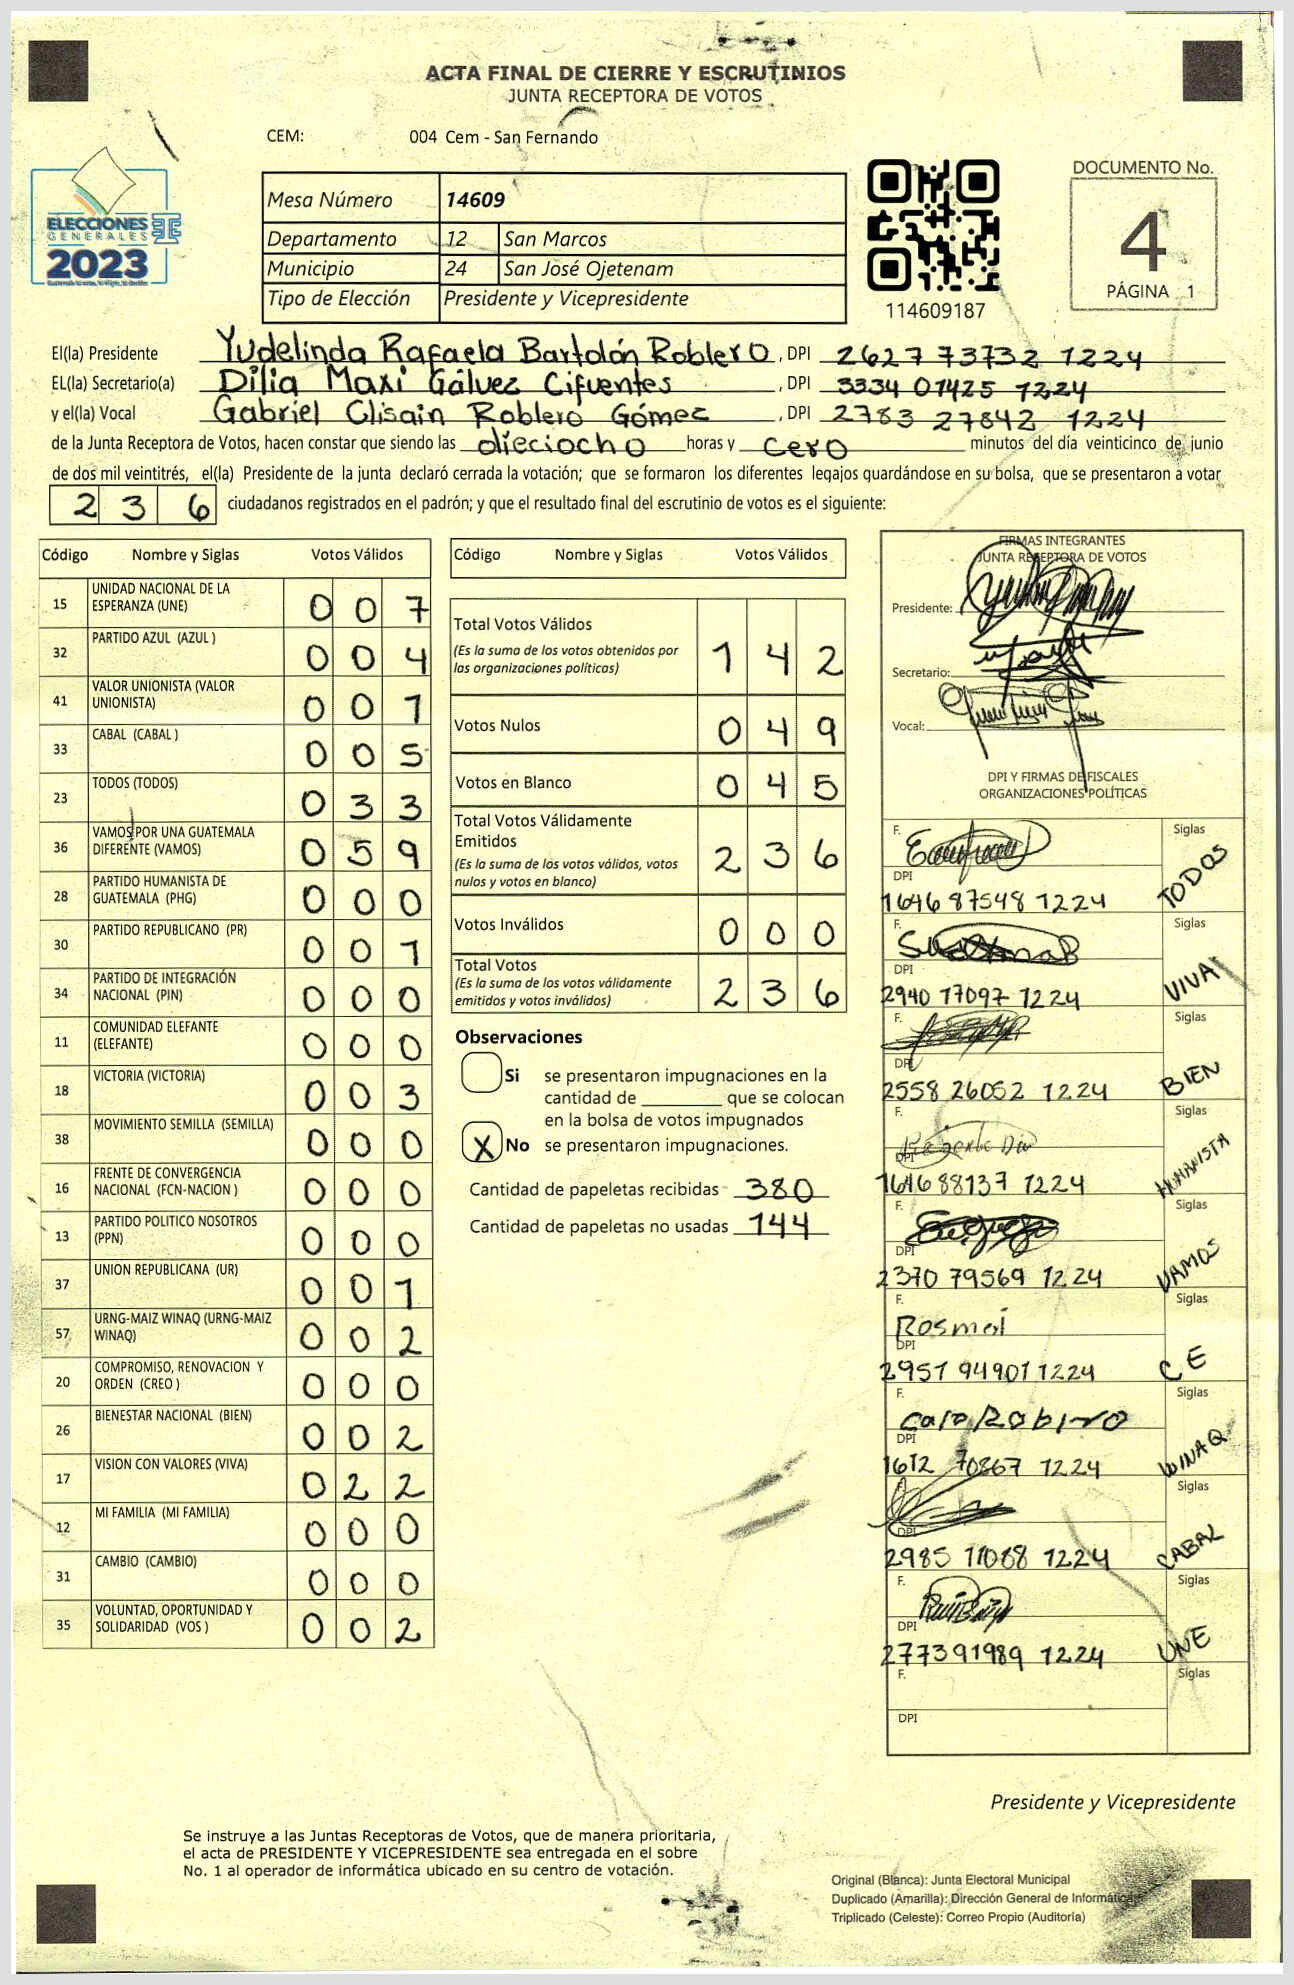 ACTA FINAL DE CIERRE Y ESCRUTINIOS
JUNTA RECEPTORA DE VOTOS
CEM: 004 Cem - San Fernando
ELECCIONES
GENERALES
2023
Mesa Número 14609
Departamento 12 San Marcos
Municipio 24 San José Ojetenam
Tipo de Elección Presidente y Vicepresidente
114609187
DOCUMENTO No.
4
PÁGINA 1
El(la) Presidente Yudelinda Rafaela Bartolón Roblero, DPI 2627 73732 1224
EL(la) Secretario(a) Dilia Maxi Gálvez Cifuentes, DPI 3334 01425 1224
y el(la) Vocal Gabriel Clisain Roblero Gómez, DPI 2783 27842 1224
de la Junta Receptora de Votos, hacen constar que siendo las dieciocho horas y cero minutos del día veinticinco de junio
de dos mil veintitrés, el(la) Presidente de la junta declaró cerrada la votación; que se formaron los diferentes legajos guardándose en su bolsa, que se presentaron a votar
2 3 6 ciudadanos registrados en el padrón; y que el resultado final del escrutinio de votos es el siguiente:
Código Nombre y Siglas Votos Válidos
15 UNIDAD NACIONAL DE LA
ESPERANZA (UNE) 0 0 7
32 PARTIDO AZUL (AZUL ) 0 0 4
41 VALOR UNIONISTA (VALOR
UNIONISTA) 0 0 1
33 CABAL (CABAL ) 0 0 5
23 TODOS (TODOS) 0 3 3
36 VAMOS POR UNA GUATEMALA
DIFERENTE (VAMOS) 0 5 9
28 PARTIDO HUMANISTA DE
GUATEMALA (PHG) 0 0 0
30 PARTIDO REPUBLICANO (PR) 0 0 1
34 PARTIDO DE INTEGRACIÓN
NACIONAL (PIN) 0 0 0
11 COMUNIDAD ELEFANTE
(ELEFANTE) 0 0 0
18 VICTORIA (VICTORIA) 0 0 3
38 MOVIMIENTO SEMILLA (SEMILLA) 0 0 0
16 FRENTE DE CONVERGENCIA
NACIONAL (FCN-NACION ) 0 0 0
13 PARTIDO POLITICO NOSOTROS
(PPN) 0 0 0
37 UNION REPUBLICANA (UR) 0 0 1
57 URNG-MAIZ WINAQ (URNG-MAIZ
WINAQ) 0 0 2
20 COMPROMISO, RENOVACION Y
ORDEN (CREO ) 0 0 0
26 BIENESTAR NACIONAL (BIEN) 0 0 2
17 VISION CON VALORES (VIVA) 0 2 2
12 MI FAMILIA (MI FAMILIA) 0 0 0
31 CAMBIO (CAMBIO) 0 0 0
35 VOLUNTAD, OPORTUNIDAD Y
SOLIDARIDAD (VOS ) 0 0 2
Código Nombre y Siglas Votos Válidos
Total Votos Válidos
(Es la suma de los votos obtenidos por
las organizaciones políticas) 1 4 2
Votos Nulos 0 4 9
Votos en Blanco 0 4 5
Total Votos Válidamente
Emitidos
(Es la suma de los votos válidos, votos
nulos y votos en blanco) 2 3 6
Votos Inválidos 0 0 0
Total Votos
(Es la suma de los votos válidamente
emitidos y votos inválidos) 2 3 6
Observaciones
Si se presentaron impugnaciones en la
cantidad de ________ que se colocan
en la bolsa de votos impugnados
X No se presentaron impugnaciones.
Cantidad de papeletas recibidas 380
Cantidad de papeletas no usadas 144
FIRMAS INTEGRANTES
JUNTA RECEPTORA DE VOTOS
Presidente:
Secretario:
Vocal:
DPI Y FIRMAS DE FISCALES
ORGANIZACIONES POLÍTICAS
F. Siglas
DPI
1646 87548 1224 TODOS
F. Siglas
DPI
2940 17097 1224 VIVA
F. Siglas
DPI
2558 26052 1224 BIEN
F. Siglas
DPI
1646 88137 1224 HUMANISTA
F. Siglas
DPI
2370 79569 1224 VAMOS
F. Siglas
Rosmeri
DPI
2951 94901 1224 CE
F. Siglas
DPI
1612 70867 1224 WINAQ
Siglas
DPI
2985 11088 1224 CABAL
F. Siglas
DPI
2773 91989 1224 UNE
F. Siglas
DPI
Presidente y Vicepresidente
Se instruye a las Juntas Receptoras de Votos, que de manera prioritaria,
el acta de PRESIDENTE Y VICEPRESIDENTE sea entregada en el sobre
No. 1 al operador de informática ubicado en su centro de votación.
Original (Blanca): Junta Electoral Municipal
Duplicado (Amarilla): Dirección General de Informática
Triplicado (Celeste): Correo Propio (Auditoría)